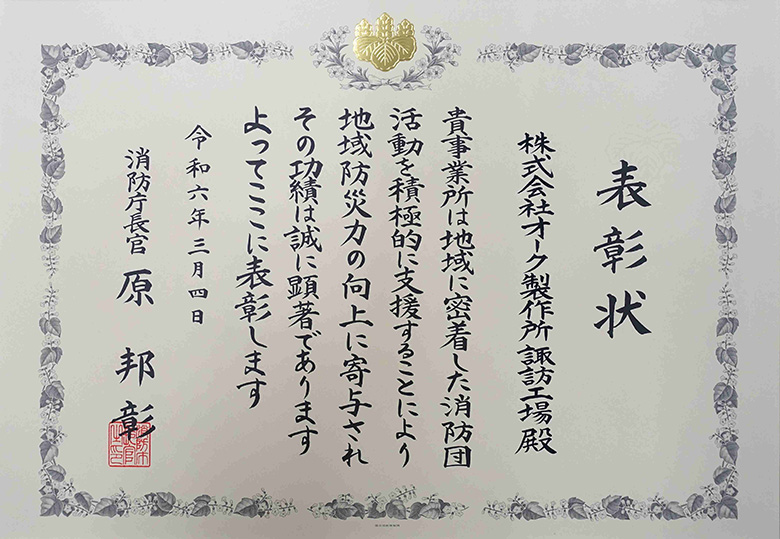 表彰状
株式会社オーク製作所 諏訪工場 殿
貴事業所は地域に密着した消防団
活動を積極的に支援することにより
地域防災力の向上に寄与され
その功績は誠に顕著であります
よってここに表彰します
令和六年三月四日
消防庁長官 原 邦彰